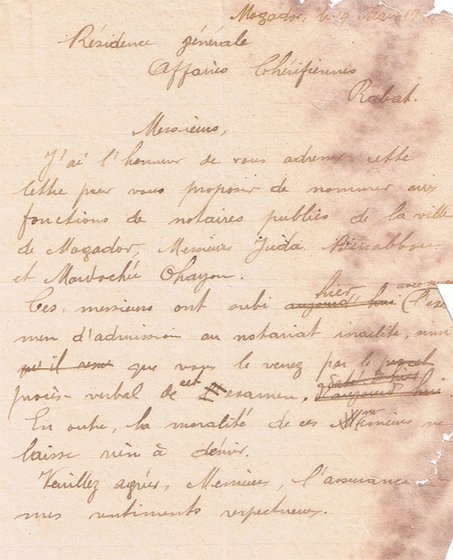 Mogador, le 19 Mai 19
Résidence générale
Affaires Chérifiennes
Rabat.
Messieurs,
J'ai l'honneur de vous adresser cette
lettre pour vous proposer de nommer aux
fonctions de notaires publics de la ville
de Mogador, Messieurs Juda Benabbou
et Mardochée Ohayon.
Ces messieurs ont subi aujourd'hui hier avec (l'exa
men d'admission au notariat israélite,
que vous le verrez par le
procès verbal de cet examen.
En outre, la moralité de ces Messieurs ne
laisse rien à désirer.
Veuillez agréer, Messieurs, l'assurance
mes sentiments respectueux.